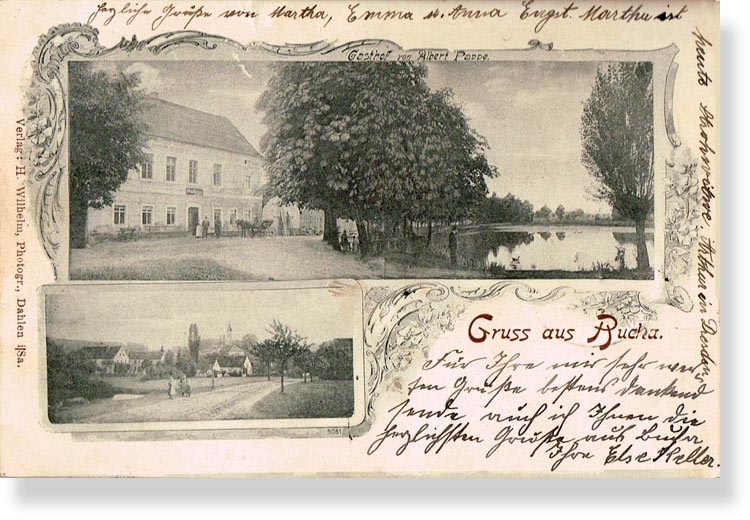 herzliche Grüße von Martha, Emma u. Anna Engst. Martha ist
heute Strohwitwe. Arthur in
Gasthof von Albert Pappe.
Verlag: H. Wilhelm, Photogr., Dahlen i|Sa.
Gruss aus Bucha.
Für Ihre mir sehr wer-
ten Grüße bestens dankend
sende auch ich Ihnen die
herzlichsten Grüße aus Bucha
Ihre Else Keller.